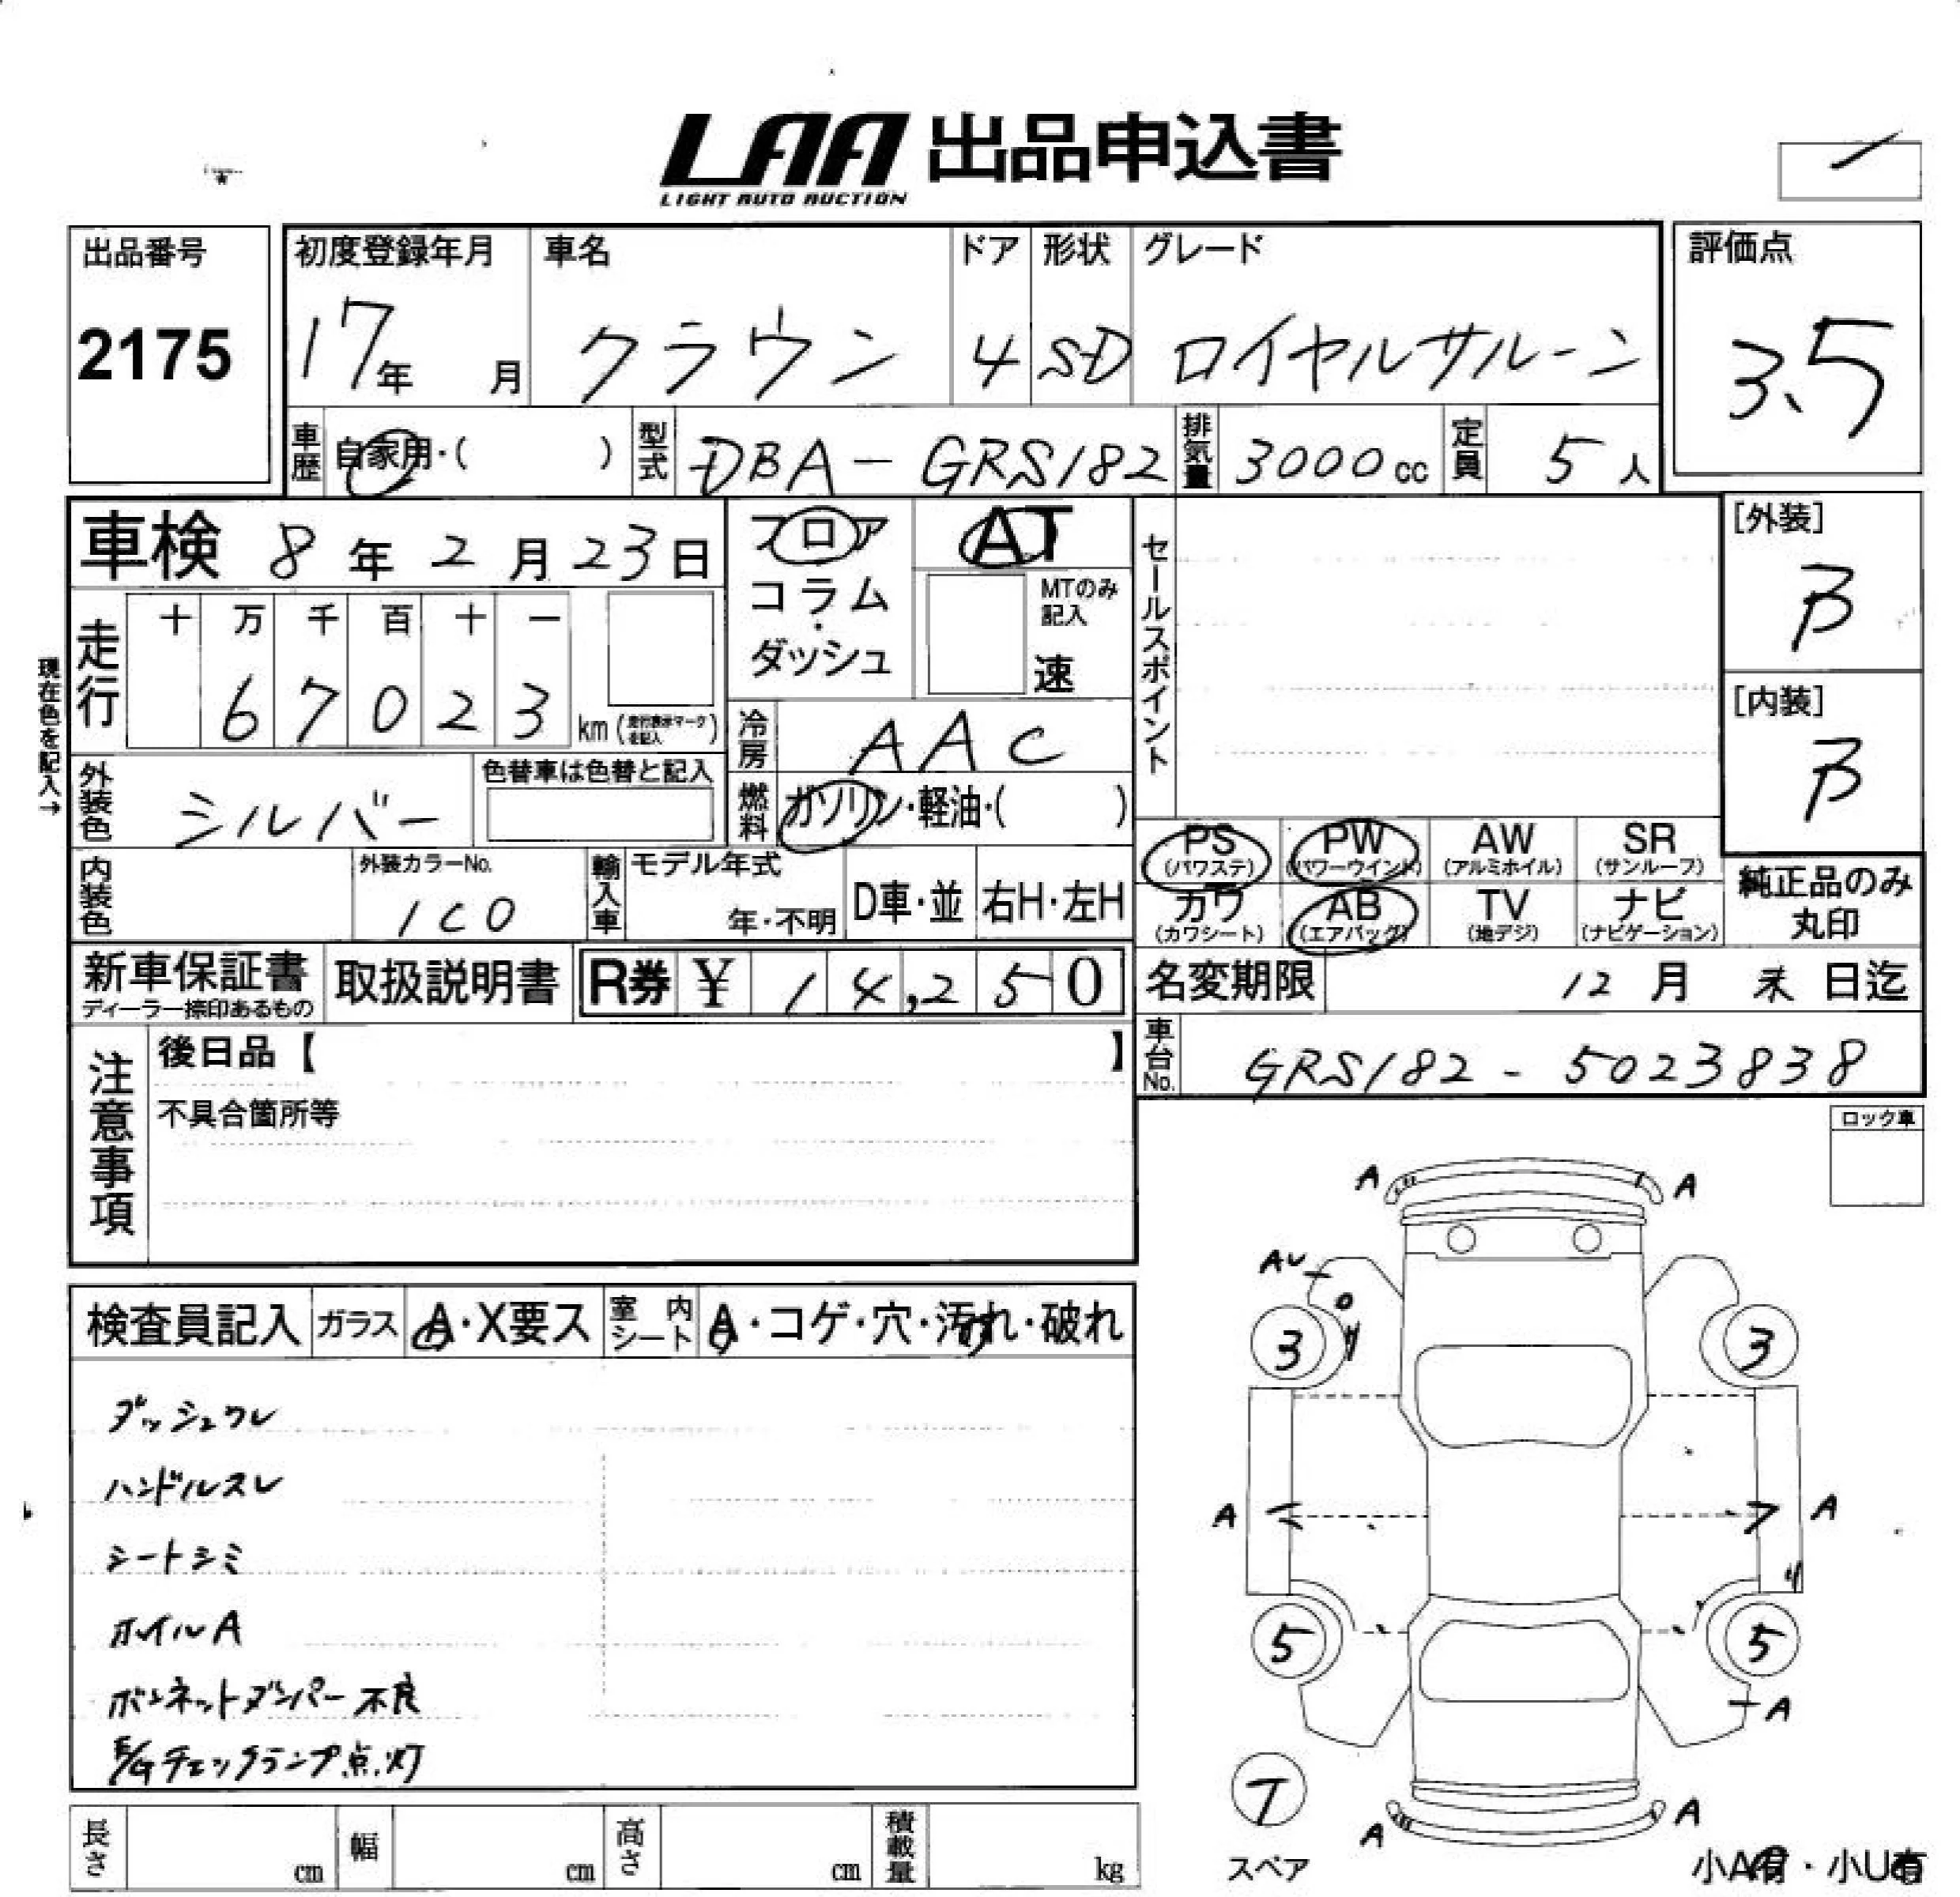 LAA 出品申込書
LIGHT AUTO AUCTION
出品番号
2175
初度登録年月
17年 月
車名
クラウン
ドア
4
形状
SD
グレード
ロイヤルサルーン
評価点
3.5
車歴 自家用・( )
型式 DBA-GRS182
排気量 3000cc
定員 5人
車検 8年2月23日
フロア
コラム
・
ダッシュ
AT
MTのみ
記入
速
セールスポイント
[外装]
B
[内装]
B
現在色を記入→
走行
十 万 千 百 十 一
6 7 0 2 3 km (走行表示マークを記入)
冷房 AAC
外装色 シルバー
色替車は色替と記入
燃料 ガソリン・軽油・( )
PS (パワステ)
PW (パワーウインド)
AW (アルミホイル)
SR (サンルーフ)
カワ (カワシート)
AB (エアバッグ)
TV (地デジ)
ナビ (ナビゲーション)
純正品のみ
丸印
内装色
外装カラーNo.
1C0
輸入車
モデル年式
年・不明
D車・並
右H・左H
新車保証書
ディーラー捺印あるもの
取扱説明書
R券 ¥ 14,250
名変期限 12月 末日迄
車台No. GRS182-5023838
注意事項
後日品【 】
不具合箇所等
ロック車
検査員記入
ガラス A・X要ス
室内シート A・コゲ・穴・汚れ・破れ
ダッシュワレ
ハンドルスレ
シートシミ
ホイルA
ボンネットダンパー不良
E/Gチェックランプ点灯
A A
AU
3 3
A A
5 5
A
T
スペア
A A
小A有・小U有
長さ cm
幅 cm
高さ cm
積載量 kg